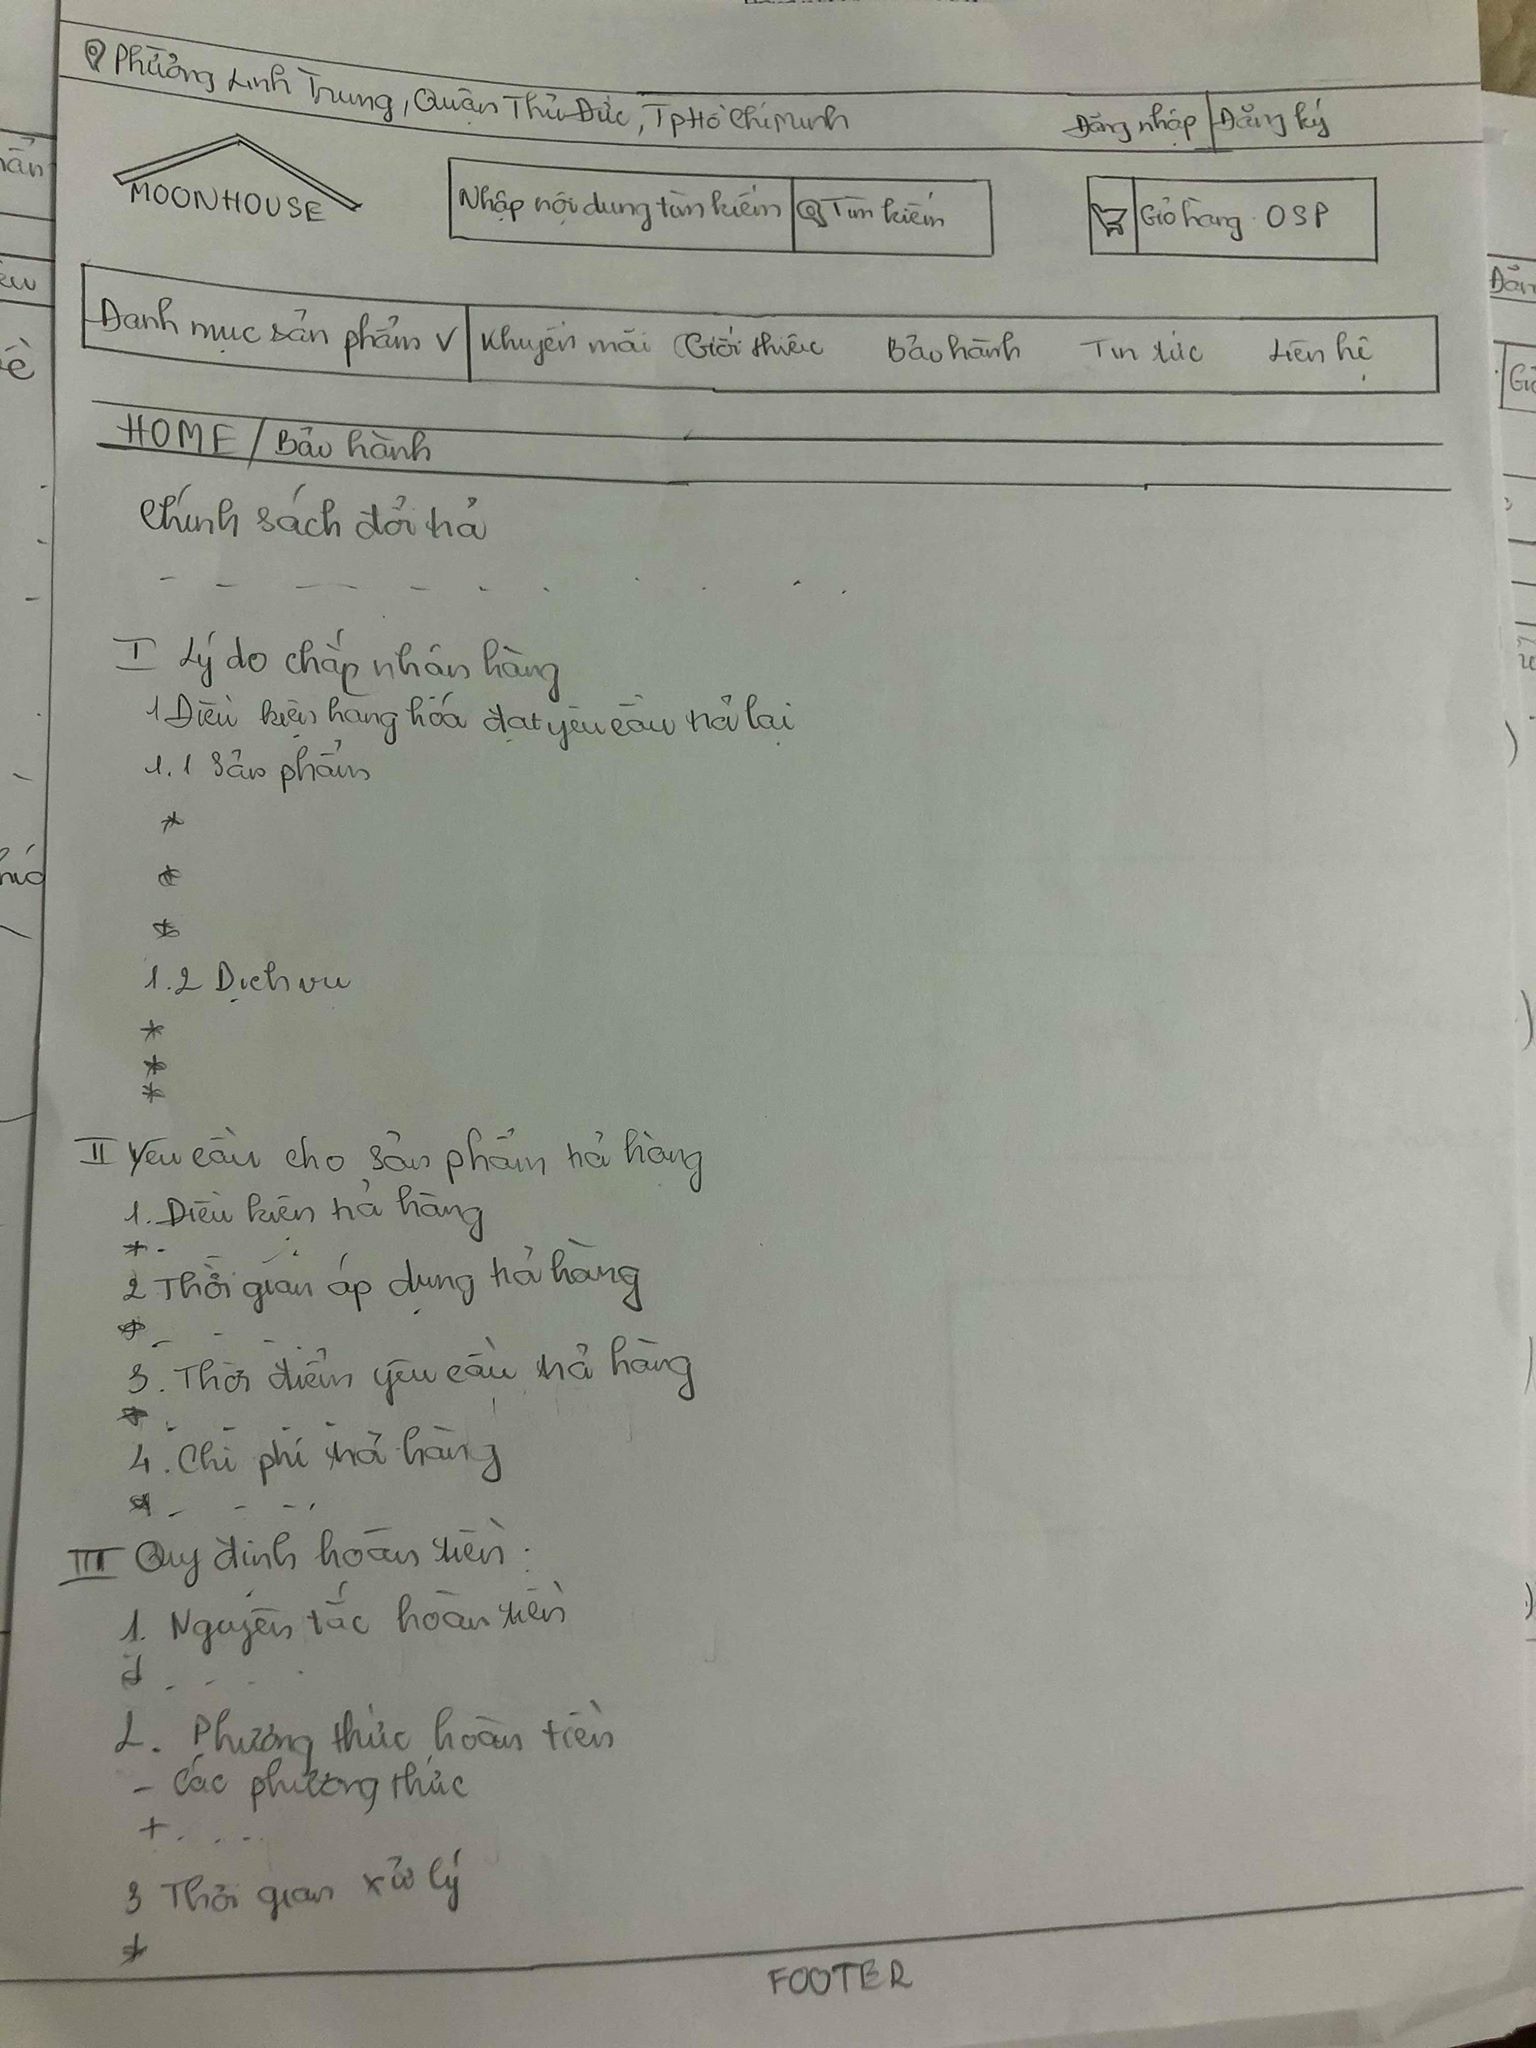 Phường Linh Trung, Quận Thủ Đức, Tp Hồ Chí Minh
Đăng nhập | Đăng ký
MOONHOUSE
Nhập nội dung tìm kiếm
Tìm kiếm
Giỏ hàng 0 SP
Danh mục sản phẩm V
Khuyến mãi Giới thiệu Bảo hành Tin tức Liên hệ
HOME / Bảo hành
Chính sách đổi trả
I Lý do chấp nhận hàng
1 Điều kiện hàng hóa đạt yêu cầu trả lại
1.1 Sản phẩm
*
*
*
1.2 Dịch vụ
*
*
*
II Yêu cầu cho sản phẩm trả hàng
1. Điều kiện trả hàng
2 Thời gian áp dụng trả hàng
3. Thời điểm yêu cầu trả hàng
4. Chi phí trả hàng
III Quy định hoàn tiền:
1. Nguyên tắc hoàn tiền
2. Phương thức hoàn tiền
- Các phương thức
+ . . . .
3 Thời gian xử lý
*
FOOTER